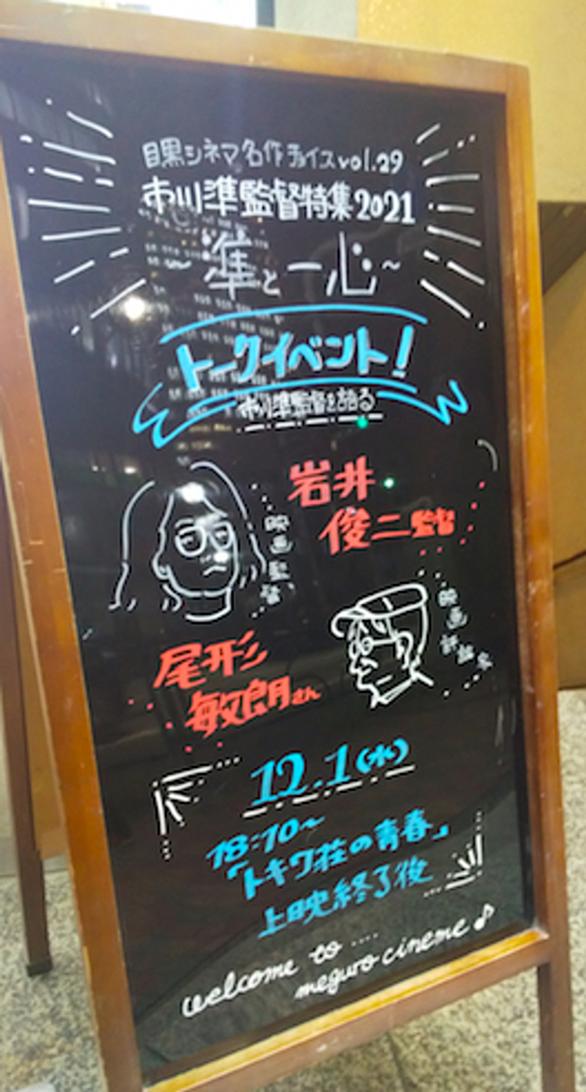 目黒シネマ名作チョイスvol.29
市川準監督特集2021
~準と一心~
トークイベント!
市川準監督を語る
岩井
俊二監督
映画監督
尾形
敏朗さん
映画評論家
12.1(水)
18:10~
「トキワ荘の青春」
上映終了後
welcome to ....
meguro cineme♪